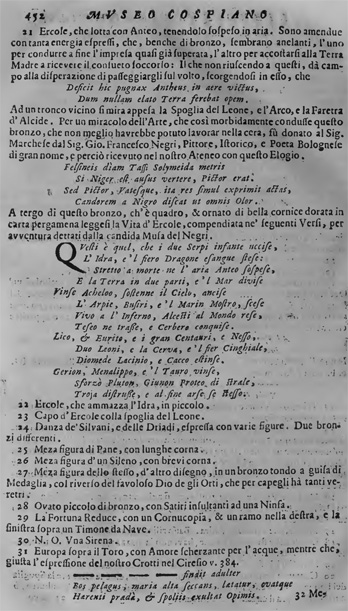 452 MVSEO COSPIANO.
21 Ercole, che lotta con Anteo, tenendolo sospeso in aria. Sono amendue
con tanta energia espressi, che, benche di bronzo, sembrano anelanti, l'uno
per condurre a fine l'impresa quasi già superata, l'altro per accostarsi alla Terra
Madre a ricevere il consueto soccorso: Il che non riuscendo a questi, dà cam-
po alla disperazione di passeggiargli sul volto, scorgendosi in esso, che
Deficit hic pugnax Antheus in aere victus,
Dum nullam elato Terra ferebat opem.
Ad un tronco vicino si mira appesa la Spoglia del Leone, e l'Arco, e la Faretra
d'Alcide. Per un miracolo dell'Arte, che così morbidamente condusse questo
bronzo, che non meglio havrebbe potuto lavorar nella cera, fù donato al Sig.
Marchese dal Sig. Gio. Francesco Negri, Pittore, Istorico, e Poeta Bolognese
di gran nome, e perciò ricevuto nel nostro Ateneo con questo Elogio.
Felsineis diam Tassi Solymeida metris
Si Niger est ausus vertere, Pictor erat.
Sed Pictor, Vatesque, ita res simul exprimit actas,
Candorem a Nigro discat ut omnis Olor.
A tergo di questo bronzo, ch'è quadro, & ornato di bella cornice dorata in
carta pergamena leggesi la Vita d'Ercole, compendiata ne' seguenti Versi, per
avventura dettati dalla candida Musa del Negri.
QVesti è quel, che i due Serpi infante uccise,
L'Idra, e 'l fiero Dragone esangue stese:
Stretto a morte ne l'aria Anteo sospese,
E la Terra in due parti, e 'l Mar divise
Vinse Acheloo, sostenne il Cielo, ancise
L'Arpie, Busiri, e 'l Marin Mostro, scese
Vivo a l'Inferno, Alcesti al Mondo rese,
Teseo ne trasse, e Cerbero conquise.
Lico, & Eurito, e i gran Centauri, e Nesso,
Duo Leoni, e la Cerva, e 'l fer Cinghiale,
Diomede Lacinio, e Cacco estinse.
Gerion, Menalippo, e 'l Tauro vinse,
Sforzò Pluton, Giunon Proteo, di Strale,
Troja distrusse, e al fine arse se stesso.
22 Ercole, che ammazza l'Idra, in piccolo.
23 Capo d'Ercole colla spoglia del Leone.
24 Danza de' Silvani, e delle Driadi, espressa con varie figure. Due bron-
zi differenti.
25 Meza figura di Pane, con lunghe corna.
26 Meza figura d'un Sileno, con brevi corna.
27 Meza figura dello stesso, d'altro disegno, in un bronzo tondo a guisa di
Medaglia, col riverso del favoloso Dio degli Orti, che per capegli hà tanti ve-
retri.
28 Ovato piccolo di bronzo, con Satiri insultanti ad una Ninfa.
29 La Fortuna Reduce, con un Cornucopia, & un ramo nella destra, e la
sinistra sopra un Timone da Nave.
30 N. O. Vna Sirena.
31 Europa sopra il Toro, con Amore scherzante per l'acque, mentre che,
giusta l'espressione del nostro Crotti nel Ciresio v. 384.
findit adulter
Bos pelagus; maria alta secans, latatur, ovatque
Harenti prada, & spoliis exultat Opimis.
32 Me-